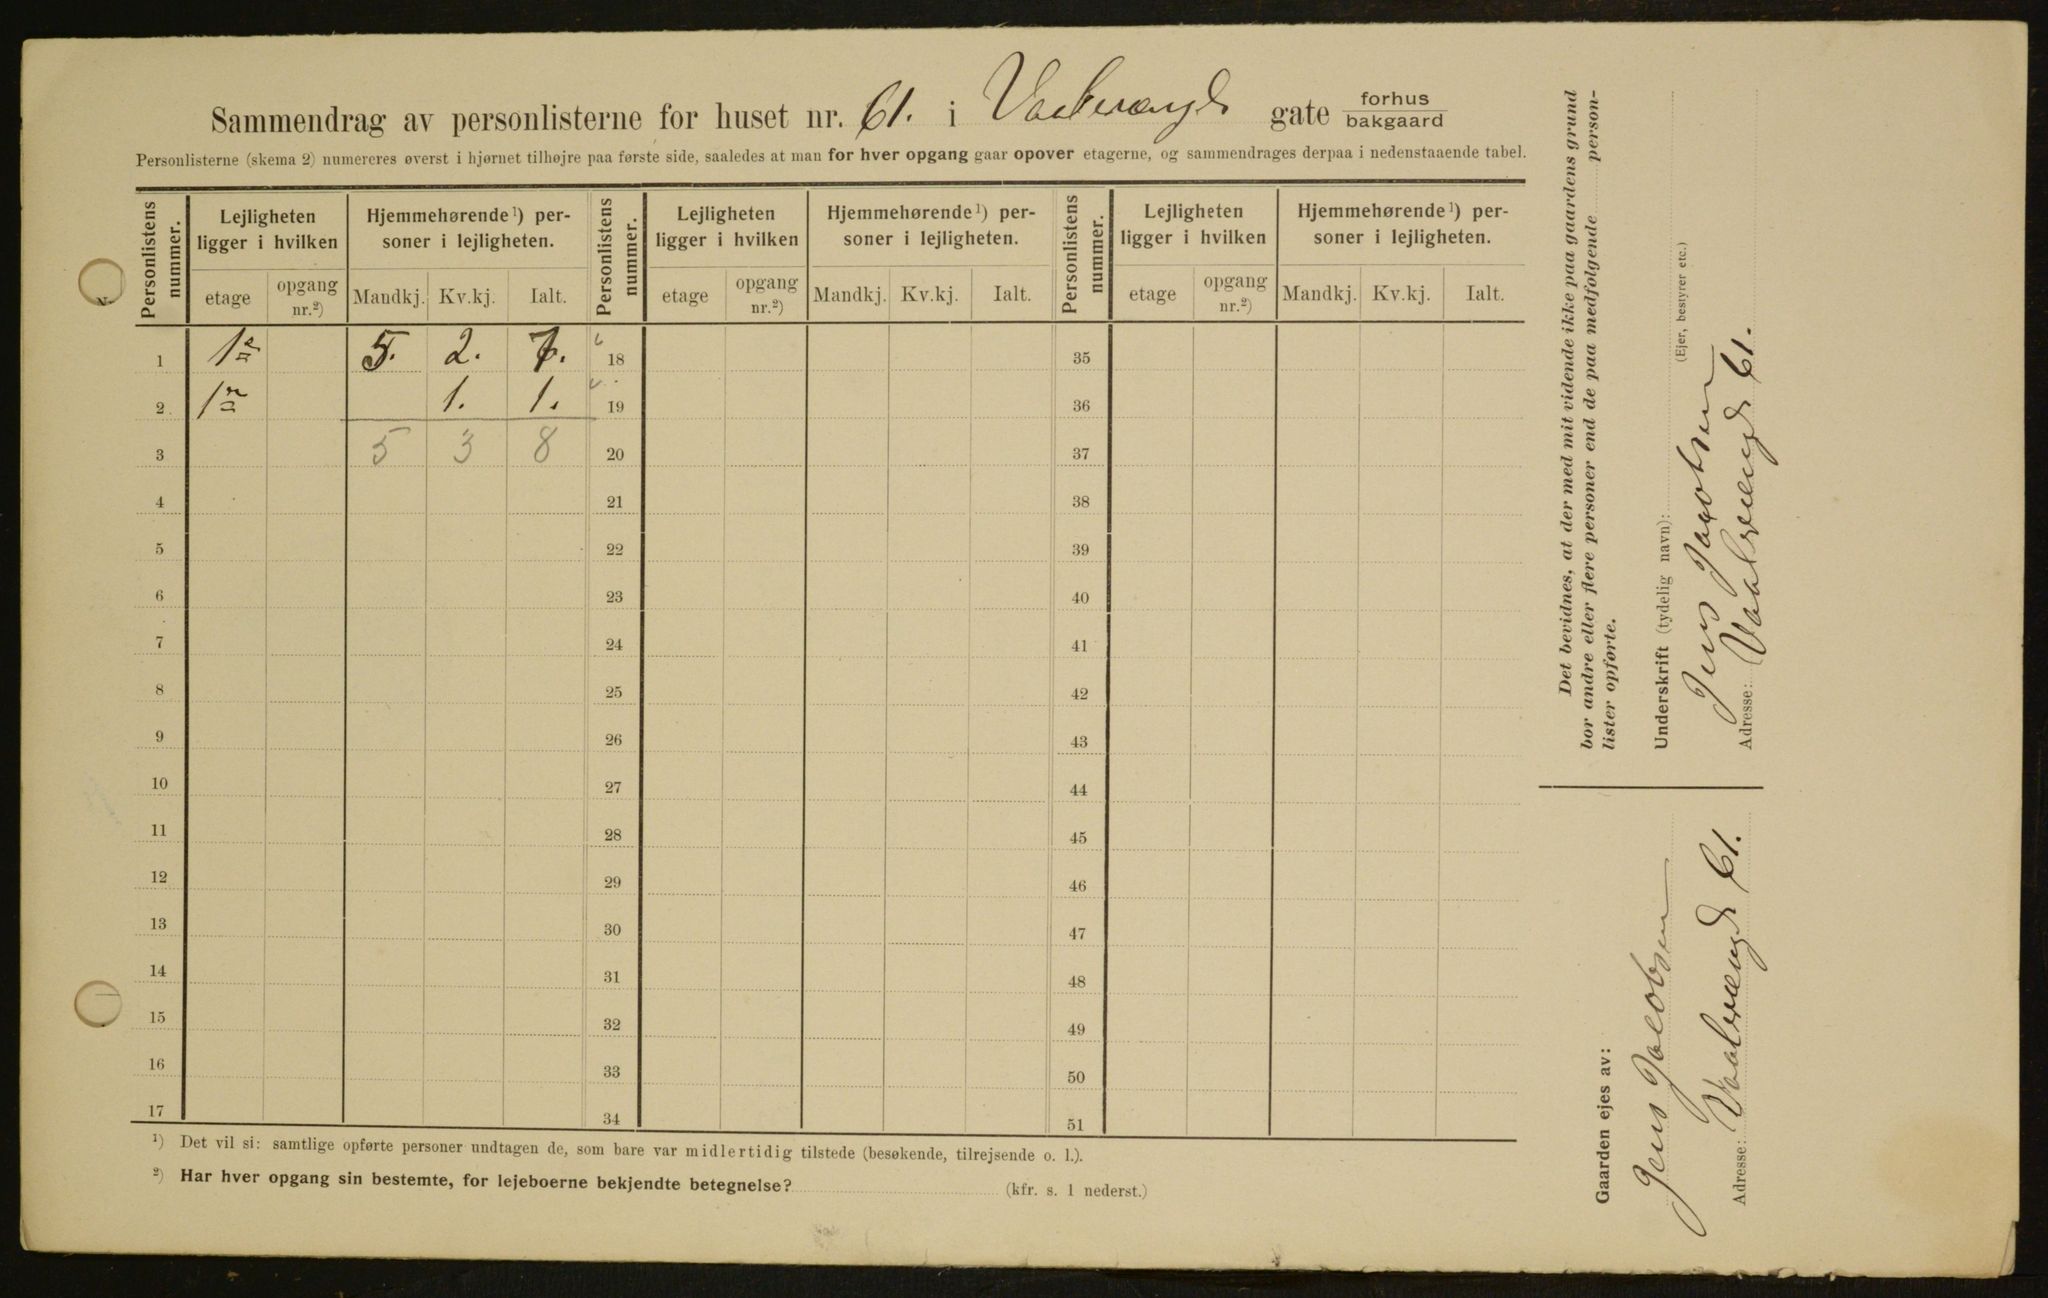 Sammendrag av personlisterne for huset nr. 61. i Vaalerengd gate forhus
bakgaard
Personlisterne (skema 2) numereres øverst i hjørnet tilhøjre paa første side, saaledes at man for hver opgang gaar opover etagerne, og sammendrages derpaa i nedenstaaende tabel.
Personlistens nummer. Lejligheten ligger i hvilken Hjemmehørende ¹) personer i lejligheten. Personlistens nummer. Lejligheten ligger i hvilken Hjemmehørende ¹) personer i lejligheten. Personlistens nummer. Lejligheten ligger i hvilken Hjemmehørende ¹) personer i lejligheten.
etage opgang nr.²) Mandkj. Kv.kj. Ialt. etage opgang nr.²) Mandkj. Kv.kj. Ialt. etage opgang nr.²) Mandkj. Kv.kj. Ialt.
1 1e 5. 2. 7. 18 35
2 1n 1. 1. 19 36
3 5 3 8 20 37
4 21 38
5 22 39
6 23 40
7 24 41
8 25 42
9 26 43
10 27 44
11 28 45
12 29 46
13 30 47
14 31 48
15 32 49
16 33 50
17 34 51
¹) Det vil si: samtlige opførte personer undtagen de, som bare var midlertidig tilstede (besøkende, tilrejsende o. l.).
²) Har hver opgang sin bestemte, for lejeboerne bekjendte betegnelse? (kfr. s. 1 nederst.)
Det bevidnes, at der med mit vidende ikke paa gaardens grund
bor andre eller flere personer end de paa medfølgende person-
lister opførte.
Underskrift (tydelig navn):
Jens Jacobsen
(Ejer, bestyrer etc.)
Adresse: Vaalerengd 61.
Gaarden ejes av:
Jens Jacobsen
Adresse: Vaalerengd 61.